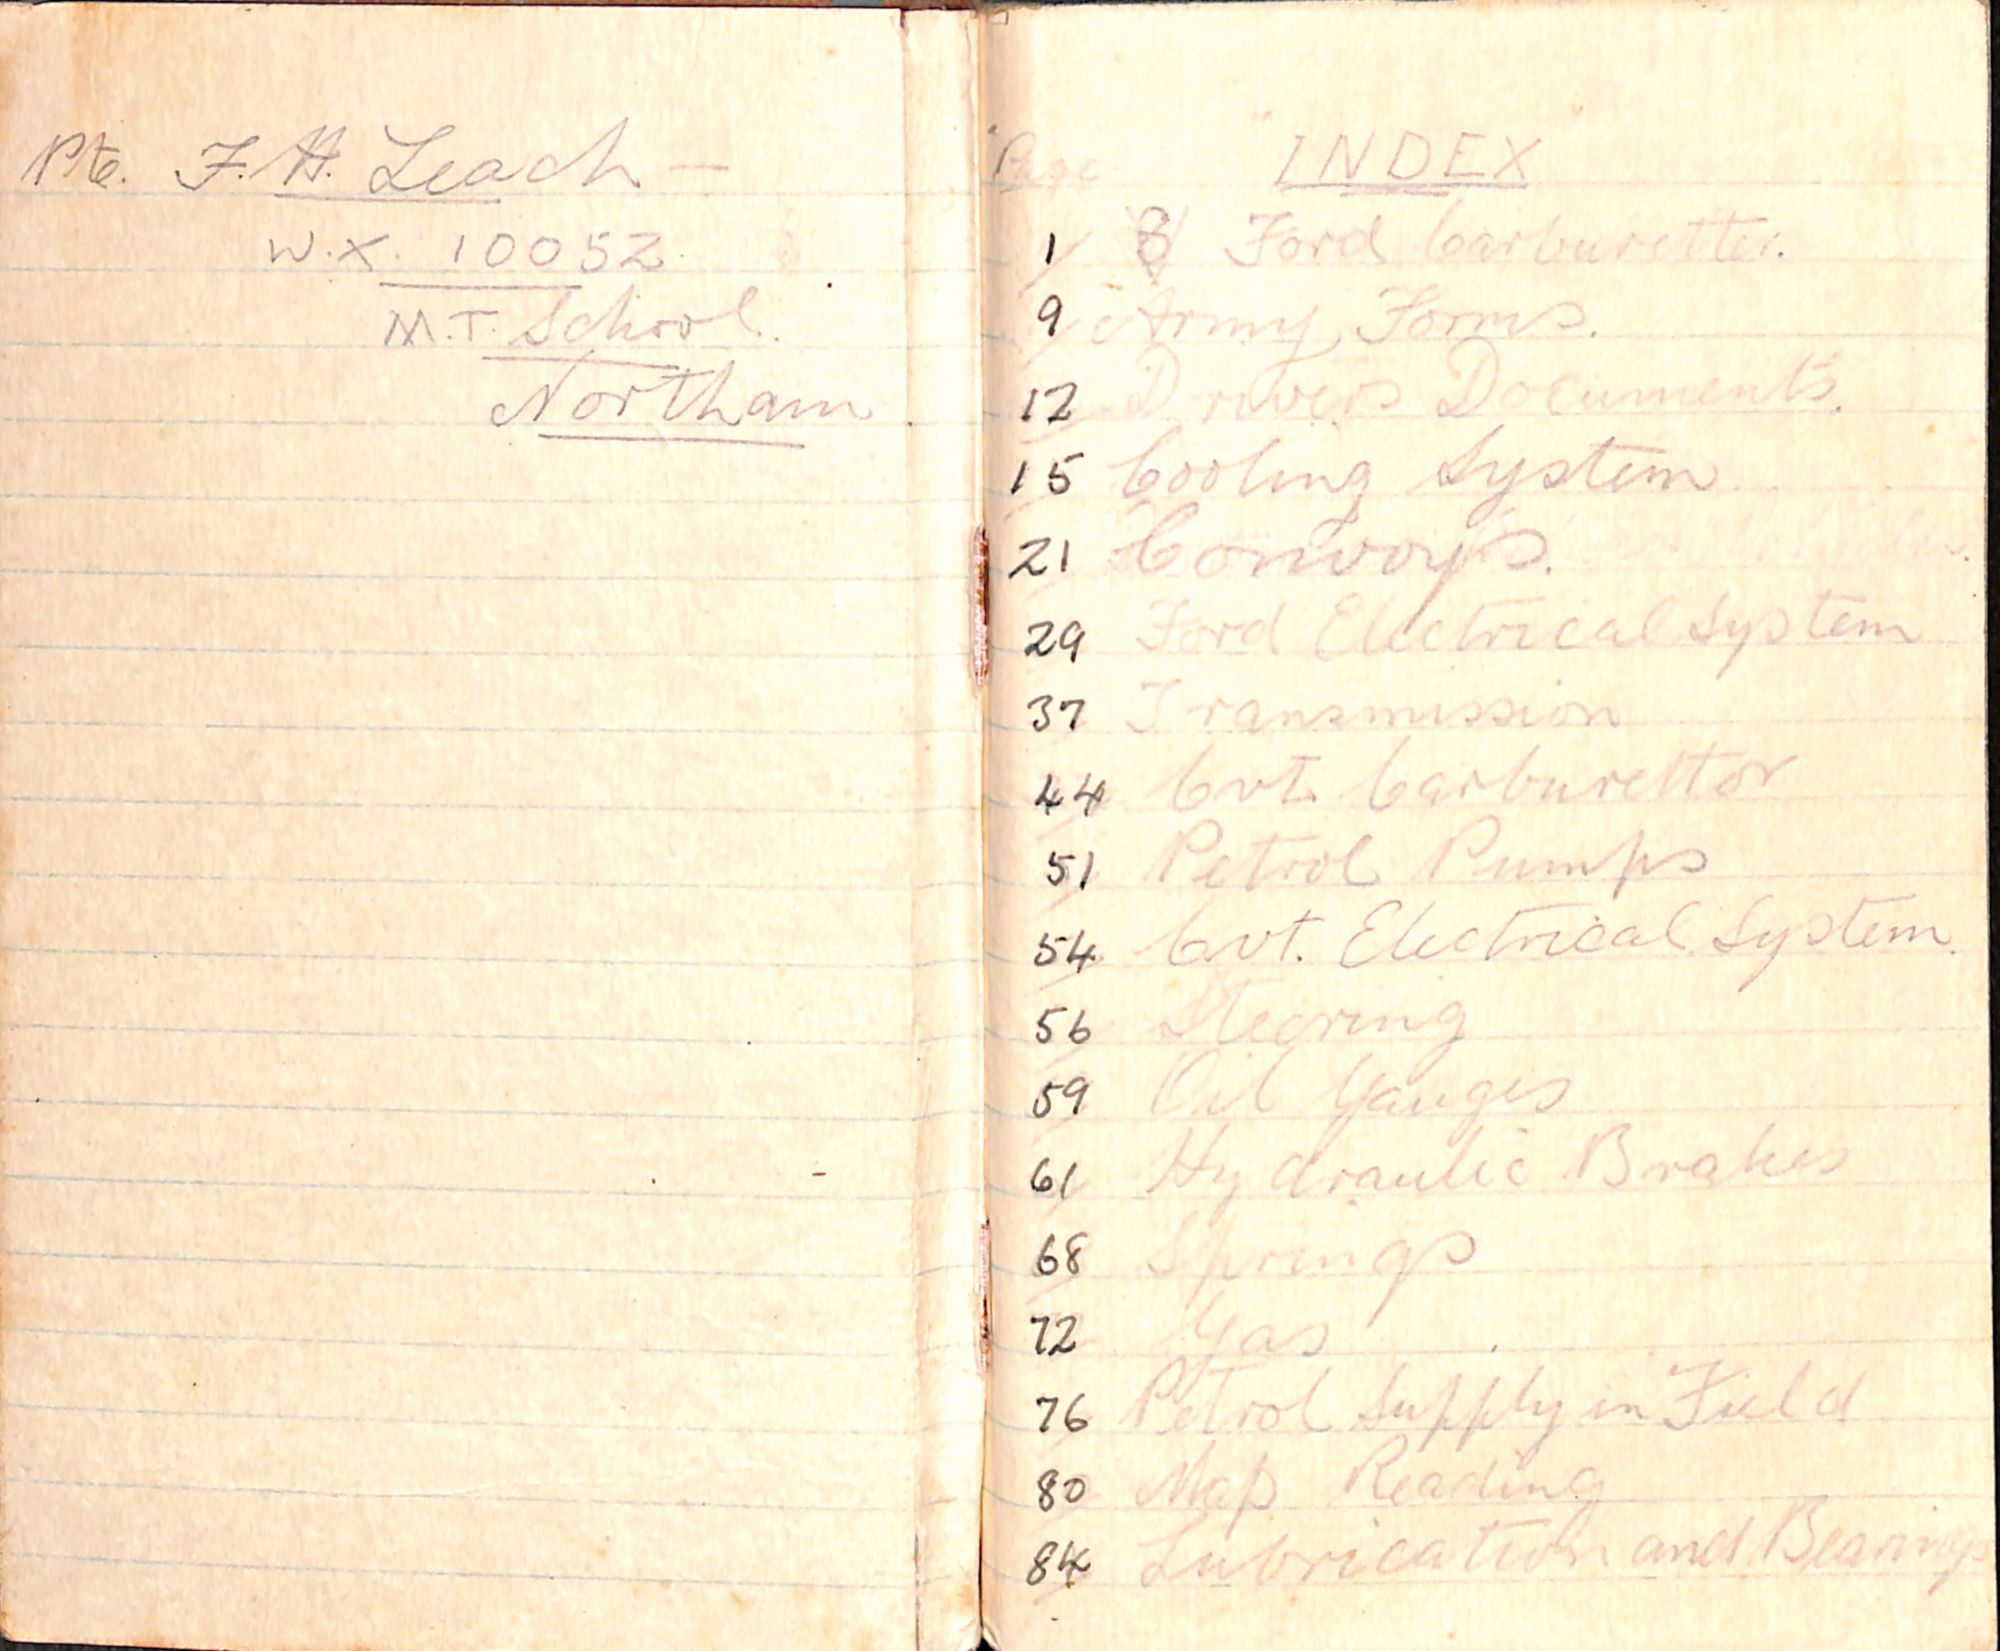 Pte. F. H. Leach —
W.X. 10052
M.T. School.
Northam
"Page "INDEX"
1 Ford Carburetter.
9 Army Forms.
12 Drivers Documents.
15 Cooling System
21 Convoys.
29 Ford Electrical System
37 Transmission
44 Cvt. Carburettor
51 Petrol Pumps
54 Cvt. Electrical System.
56 Steering
59 Oil Gauges
61 Hydraulic Brakes
68 Springs
72 Gas
76 Petrol Supply in Field
80 Map Reading
84 Lubrication and Bearings